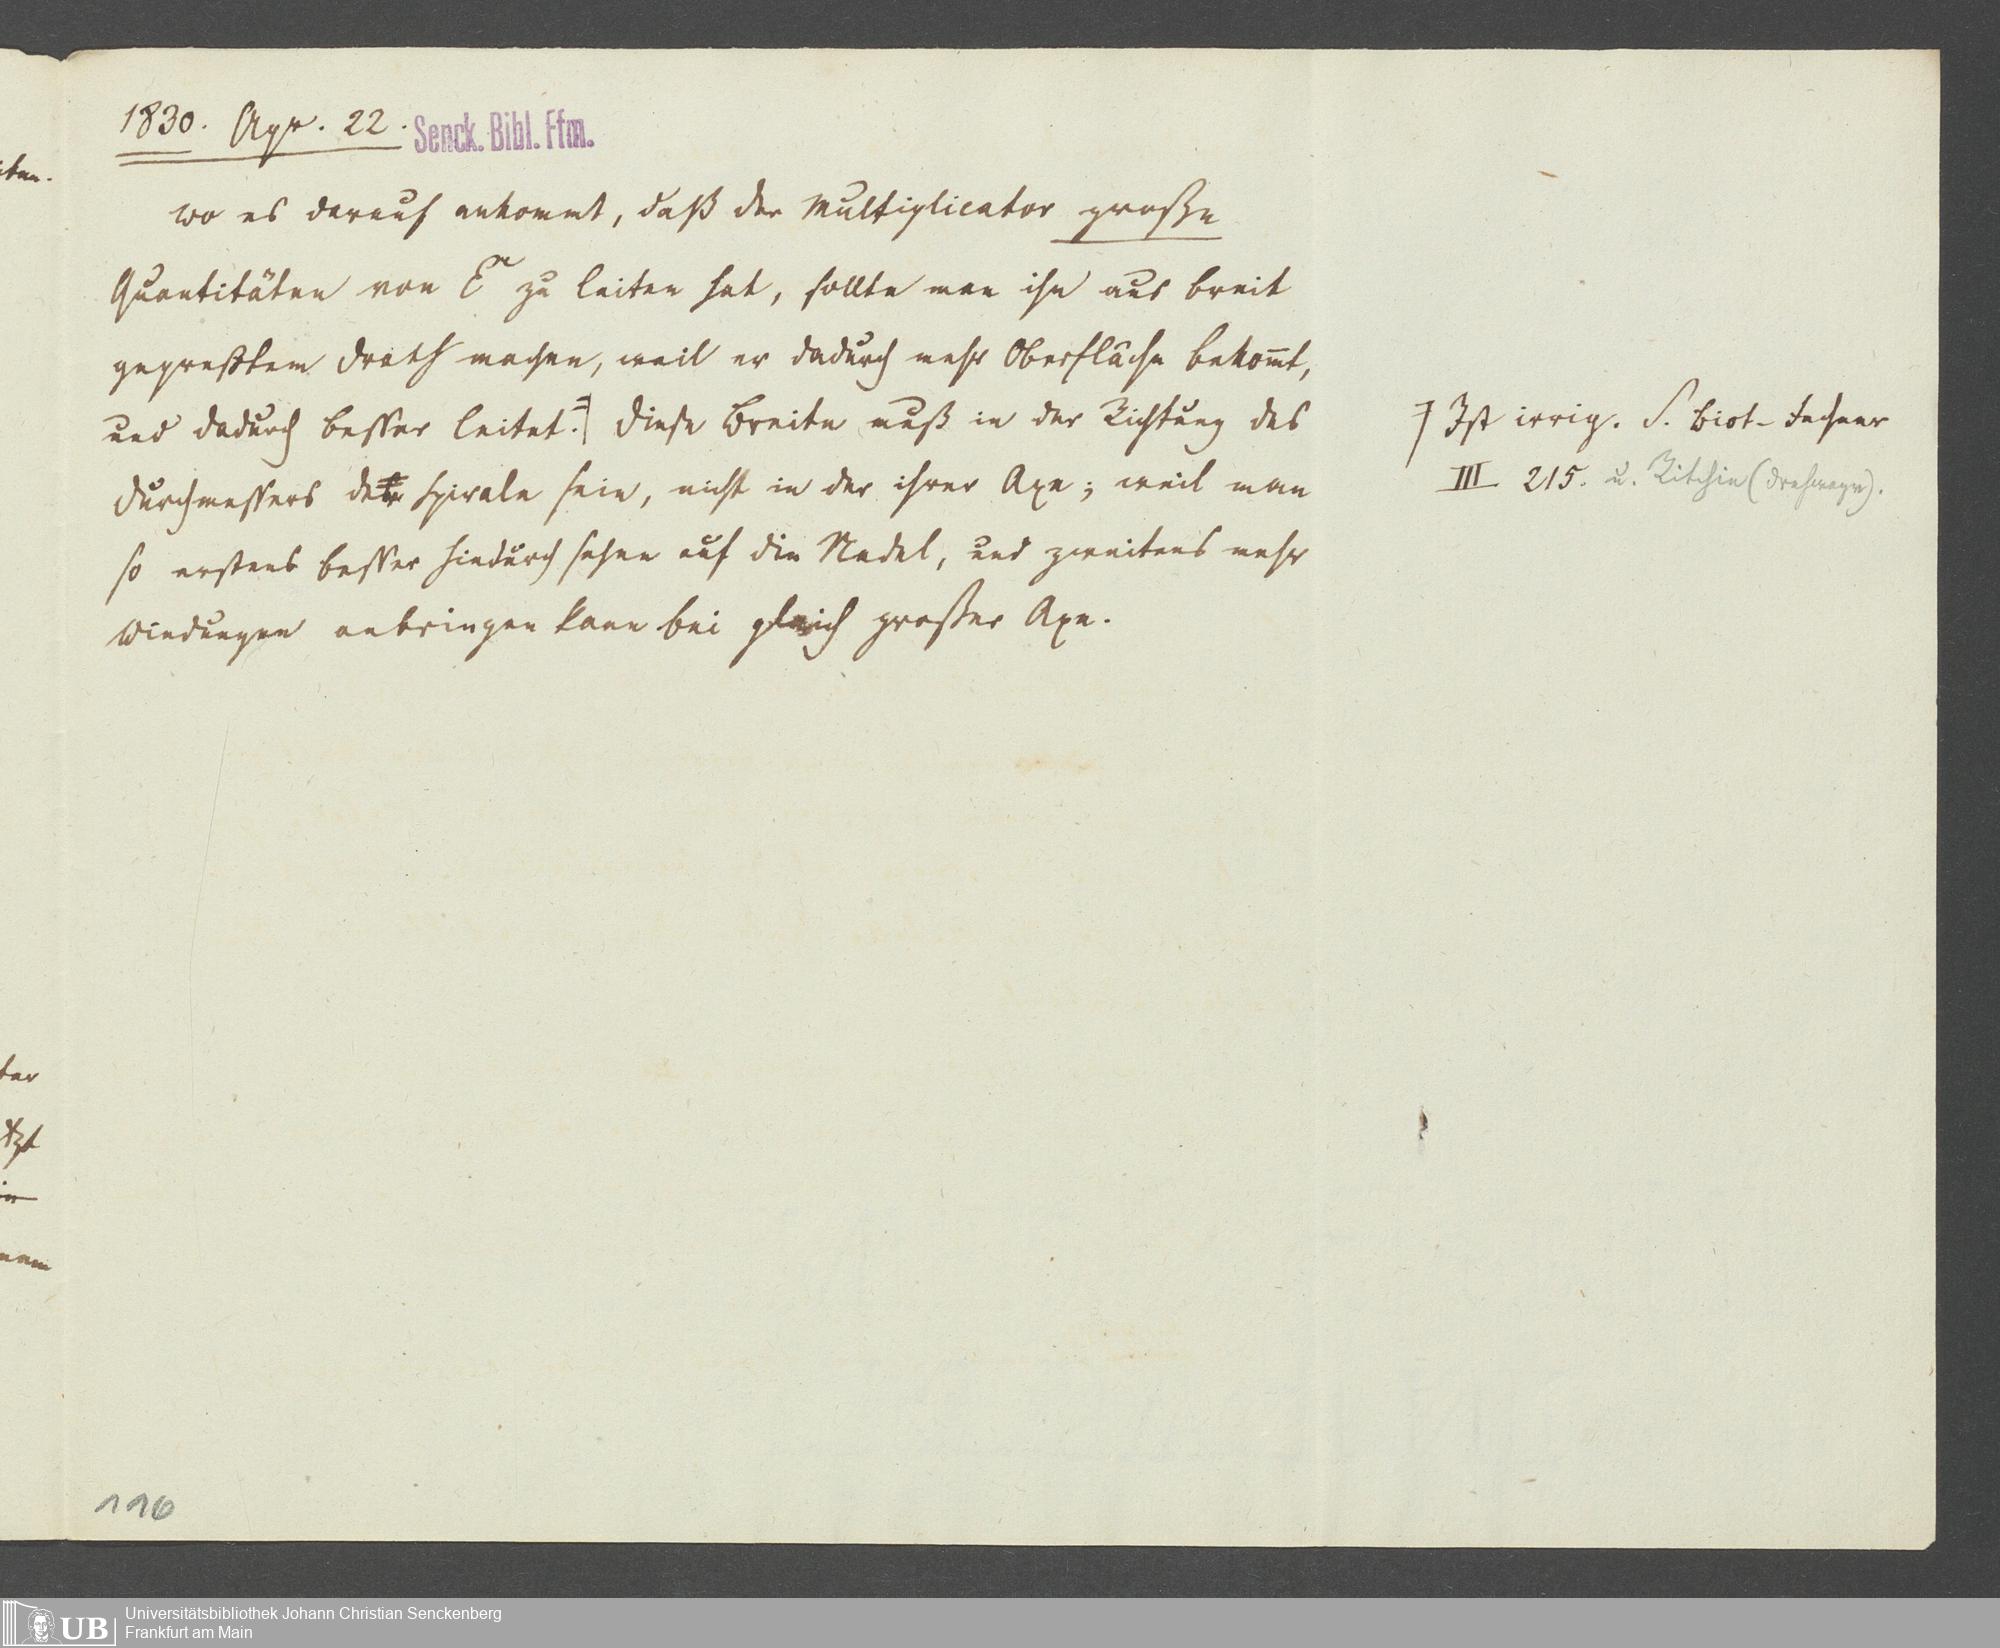 1830. Apr. 22. Senck. Bibl. Ffm.
wo es darauf ankommt, daß der Multiplicator große
Quantitäten von E zu leiten hat, sollte man ihn aus breit
gepreßtem Drath machen, weil er dadurch mehr Oberfläche bekom̅t,
und dadurch besser leitet. Diese Breite muß in der Richtung des
Durchmessers der Spirale sein, nicht in der ihrer Axe; weil man
so erstens besser hindurch sehen auf die Nadel, und zweitens mehr
Windungen anbringen kann bei gleich großer Axe.
Ist irrig. S. Biot-Fechner
III 215. u. Ritchie (Drehwage).
ter
tzt
in
116
UB Universitätsbibliothek Johann Christian Senckenberg
Frankfurt am Main